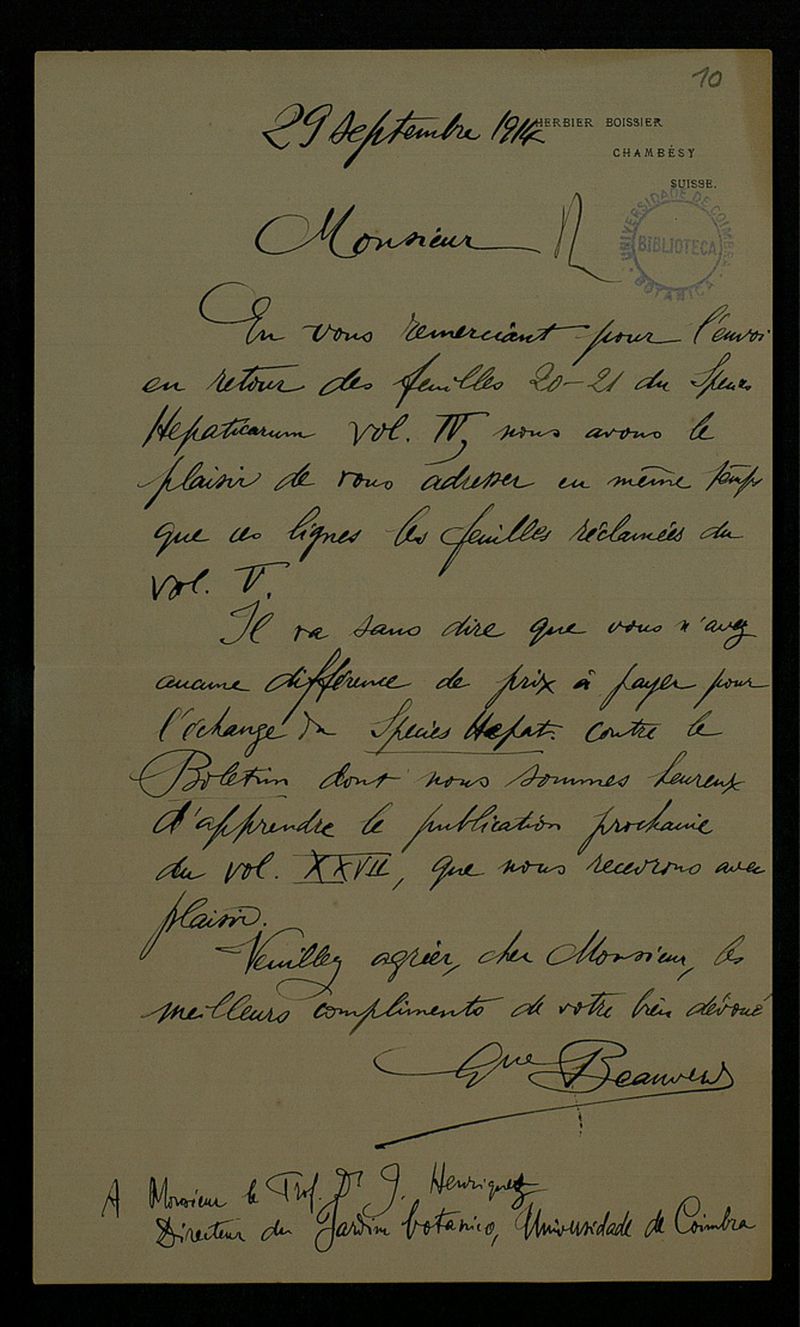 10
29 septembre 1914
HERBIER BOISSIER
CHAMBÉSY
SUISSE.
UNIVERSIDADE DE COIMBRA
BIBLIOTECA
BOTANICA
Monsieur R
En vous remerciant pour l'envoi
en retour des feuilles 20-21 du Species
Hepaticarum vol. IV, nous avons le
plaisir de vous adresser en même temps
que ces lignes les feuilles réclamées du
vol. V.
Il va sans dire que vous n'avez
aucune différence de prix à payer pour
l'échange du Species Hepat. contre le
Boletim dont nous sommes heureux
d'apprendre le publication prochaine
du vol. XXVII, que nous recevrons avec
plaisir.
Veuillez agréer, cher Monsieur, les
meilleurs compliments de votre bien dévoué
Gve Beauverd
A Monsieur le Prof. Dr J. Henriquez
Directeur du Jardim botanico, Universidade de Coimbra